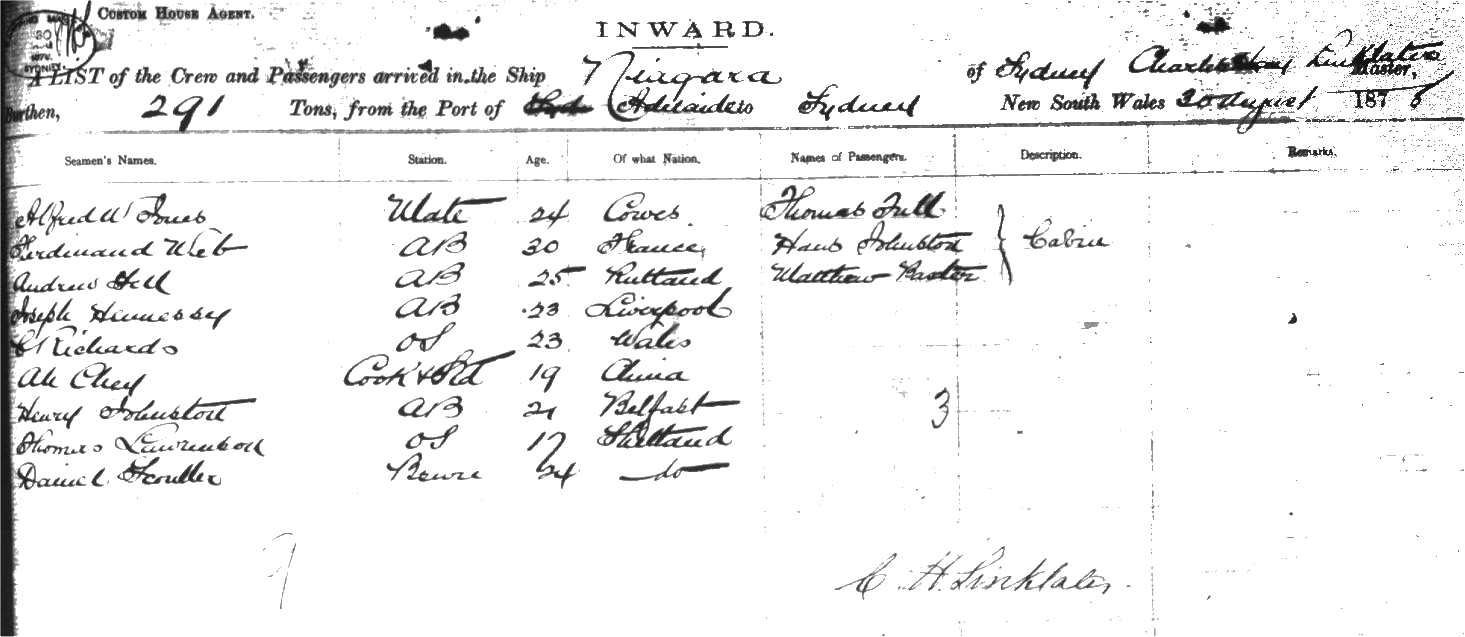 CUSTOM HOUSE AGENT.
30
SYDNEY
INWARD.
A LIST of the Crew and Passengers arrived in the Ship Niagara of Sydney Charles Linklater Master,
Burthen, 291 Tons, from the Port of Adelaide to Sydney New South Wales 30 August 1878
Seamen's Names. Station. Age. Of what Nation. Names of Passengers. Description. Remarks.
Alfred W Jones Mate 24 Cowes Thomas Tull
Ferdinand Web AB 30 France Hans Johnston Cabin
Andrew Hill AB 25 Matthew
Joseph Hennessy AB 23 Liverpool
C Richards OS 23 Wales
Ah Chey Cook & Std 19 China
Henry Johnston AB 21 Belfast 3
Thomas Lawrenson OS 17 Shetland
Daniel 24 do
9
C. H. Linklater.